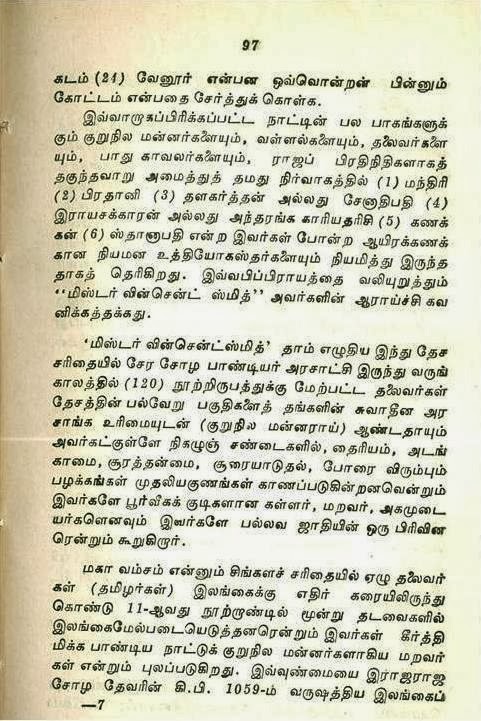 97
கடம் (24) வேனூர் என்பன ஒவ்வொன்றன் பின்னும்
கோட்டம் என்பதை சேர்த்துக் கொள்க.
இவ்வாறாகப்பிரிக்கப்பட்ட நாட்டின் பல பாகங்களுக்
கும் குறுநில மன்னர்களையும், வள்ளல்களையும், தலைவர்களை
யும், பாது காவலர்களையும், ராஜப் பிரதிநிதிகளாகத்
தகுந்தவாறு அமைத்துத் தமது நிர்வாகத்தில் (1) மந்திரி
(2) பிரதானி (3) தளகர்த்தன் அல்லது சேனாதிபதி (4)
இராயசக்காரன் அல்லது அந்தரங்க காரியதரிசி (5) கணக்
கன் (6) ஸ்தானாபதி என்ற இவர்கள் போன்ற ஆயிரக்கணக்
கான நியமன உத்தியோகஸ்தர்களையும் நியமித்து இருந்த
தாகத் தெரிகிறது. இவ்வபிப்பிராயத்தை வலியுறுத்தும்
"மிஸ்டர் வின்சென்ட் ஸ்மித்" அவர்களின் ஆராய்ச்சி கவ
னிக்கத்தக்கது.
'மிஸ்டர் வின்சென்ட்ஸ்மித்' தாம் எழுதிய இந்து தேச
சரிதையில் சேர சோழ பாண்டியர் அரசாட்சி இருந்து வருங்
காலத்தில் (120) நூற்றிருபத்துக்கு மேற்பட்ட தலைவர்கள்
தேசத்தின் பல்வேறு பகுதிகளைத் தங்களின் சுவாதீன அர
சாங்க உரிமையுடன் (குறுநில மன்னராய்) ஆண்டதாயும்
அவர்கட்குள்ளே நிகழுஞ் சண்டைகளில், தைரியம், அடங்
காமை, சூரத்தன்மை, சூரையாடுதல், போரை விரும்பும்
பழக்கங்கள் முதலியகுணங்கள் காணப்படுகின்றனவென்றும்
இவர்களே பூர்வீகக் குடிகளான கள்ளர், மறவர், அகமுடை
யர்களெனவும் இவர்களே பல்லவ ஜாதியின் ஒரு பிரிவின
ரென்றும் கூறுகிறார்.
மகா வம்சம் என்னும் சிங்களச் சரிதையில் ஏழு தலைவர்
கள் (தமிழர்கள்) இலங்கைக்கு எதிர் கரையிலிருந்து
கொண்டு 11-ஆவது நூற்றாண்டில் மூன்று தடவைகளில்
இலங்கைமேல்படையெடுத்தனரென்றும் இவர்கள் கீர்த்தி
மிக்க பாண்டிய நாட்டுக் குறுநில மன்னர்களாகிய மறவர்
கள் என்றும் புலப்படுகிறது. இவ்வுண்மையை இராஜராஜ
சோழ தேவரின் கி.பி. 1059-ம் வருஷத்திய இலங்கைப்
—7